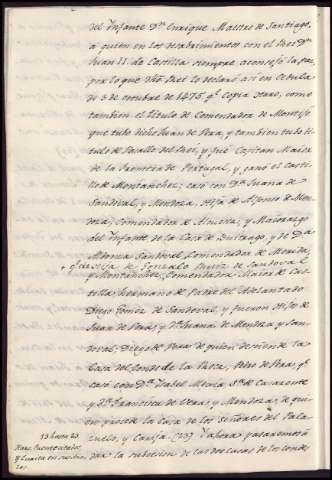 del Infante Dn. Enrique Maestre de Santiago,
a quien en los desabrimientos con el Rey Dn.
Juan II. de Castilla siempre aconsejó la paz,
por lo que dho Rey lo declaró así en Cedula
de 3 de octubre de 1475, qe. copia Haro, como
tambien el titulo de Comendador de Montijo
que tubo dicho Juan de Vera, y tambien tubo ti
tulo de Vasallo del Rey, y fué Capitan Maior
de la frontera de Portugal, y ganó el Casti
llo de Montanchez; casó con Da. Juana de
Sandoval, y Mendoza, Hija de Alfonso de Men
doza, Comendador de y Maiorazgo
del Infante de la Casa de Buitrago, y de Da.
Aldonza Sandoval Comendador de Merida,
+ qe. era Hija de Gonzalo Nuñez de Sandoval
y Montanchez, Comendador Maior de Cas
tilla, hermano de Padre del Adelantado
Diego Gomez de Sandoval, y fueron Hijos de
Juan de Vera, y Da. Juana de Mendoza y San
doval, Diego de Vera, de quien desciende la
Casa del Conde de la Roca, Pedro de Vera, qe.
casó con Da. Isabel Mexia, Sra. de
y Dn. Francisco de Vera, y Mendoza, de qui
en procede la Casa de los Señores del Pala
zuelo, y (23) y ahora pasaremos á
dar la subcesion de las dos casas de los Conds.
23 Laura 23.
Haro, fuente citados,
y Lavaña en sus No
tas.